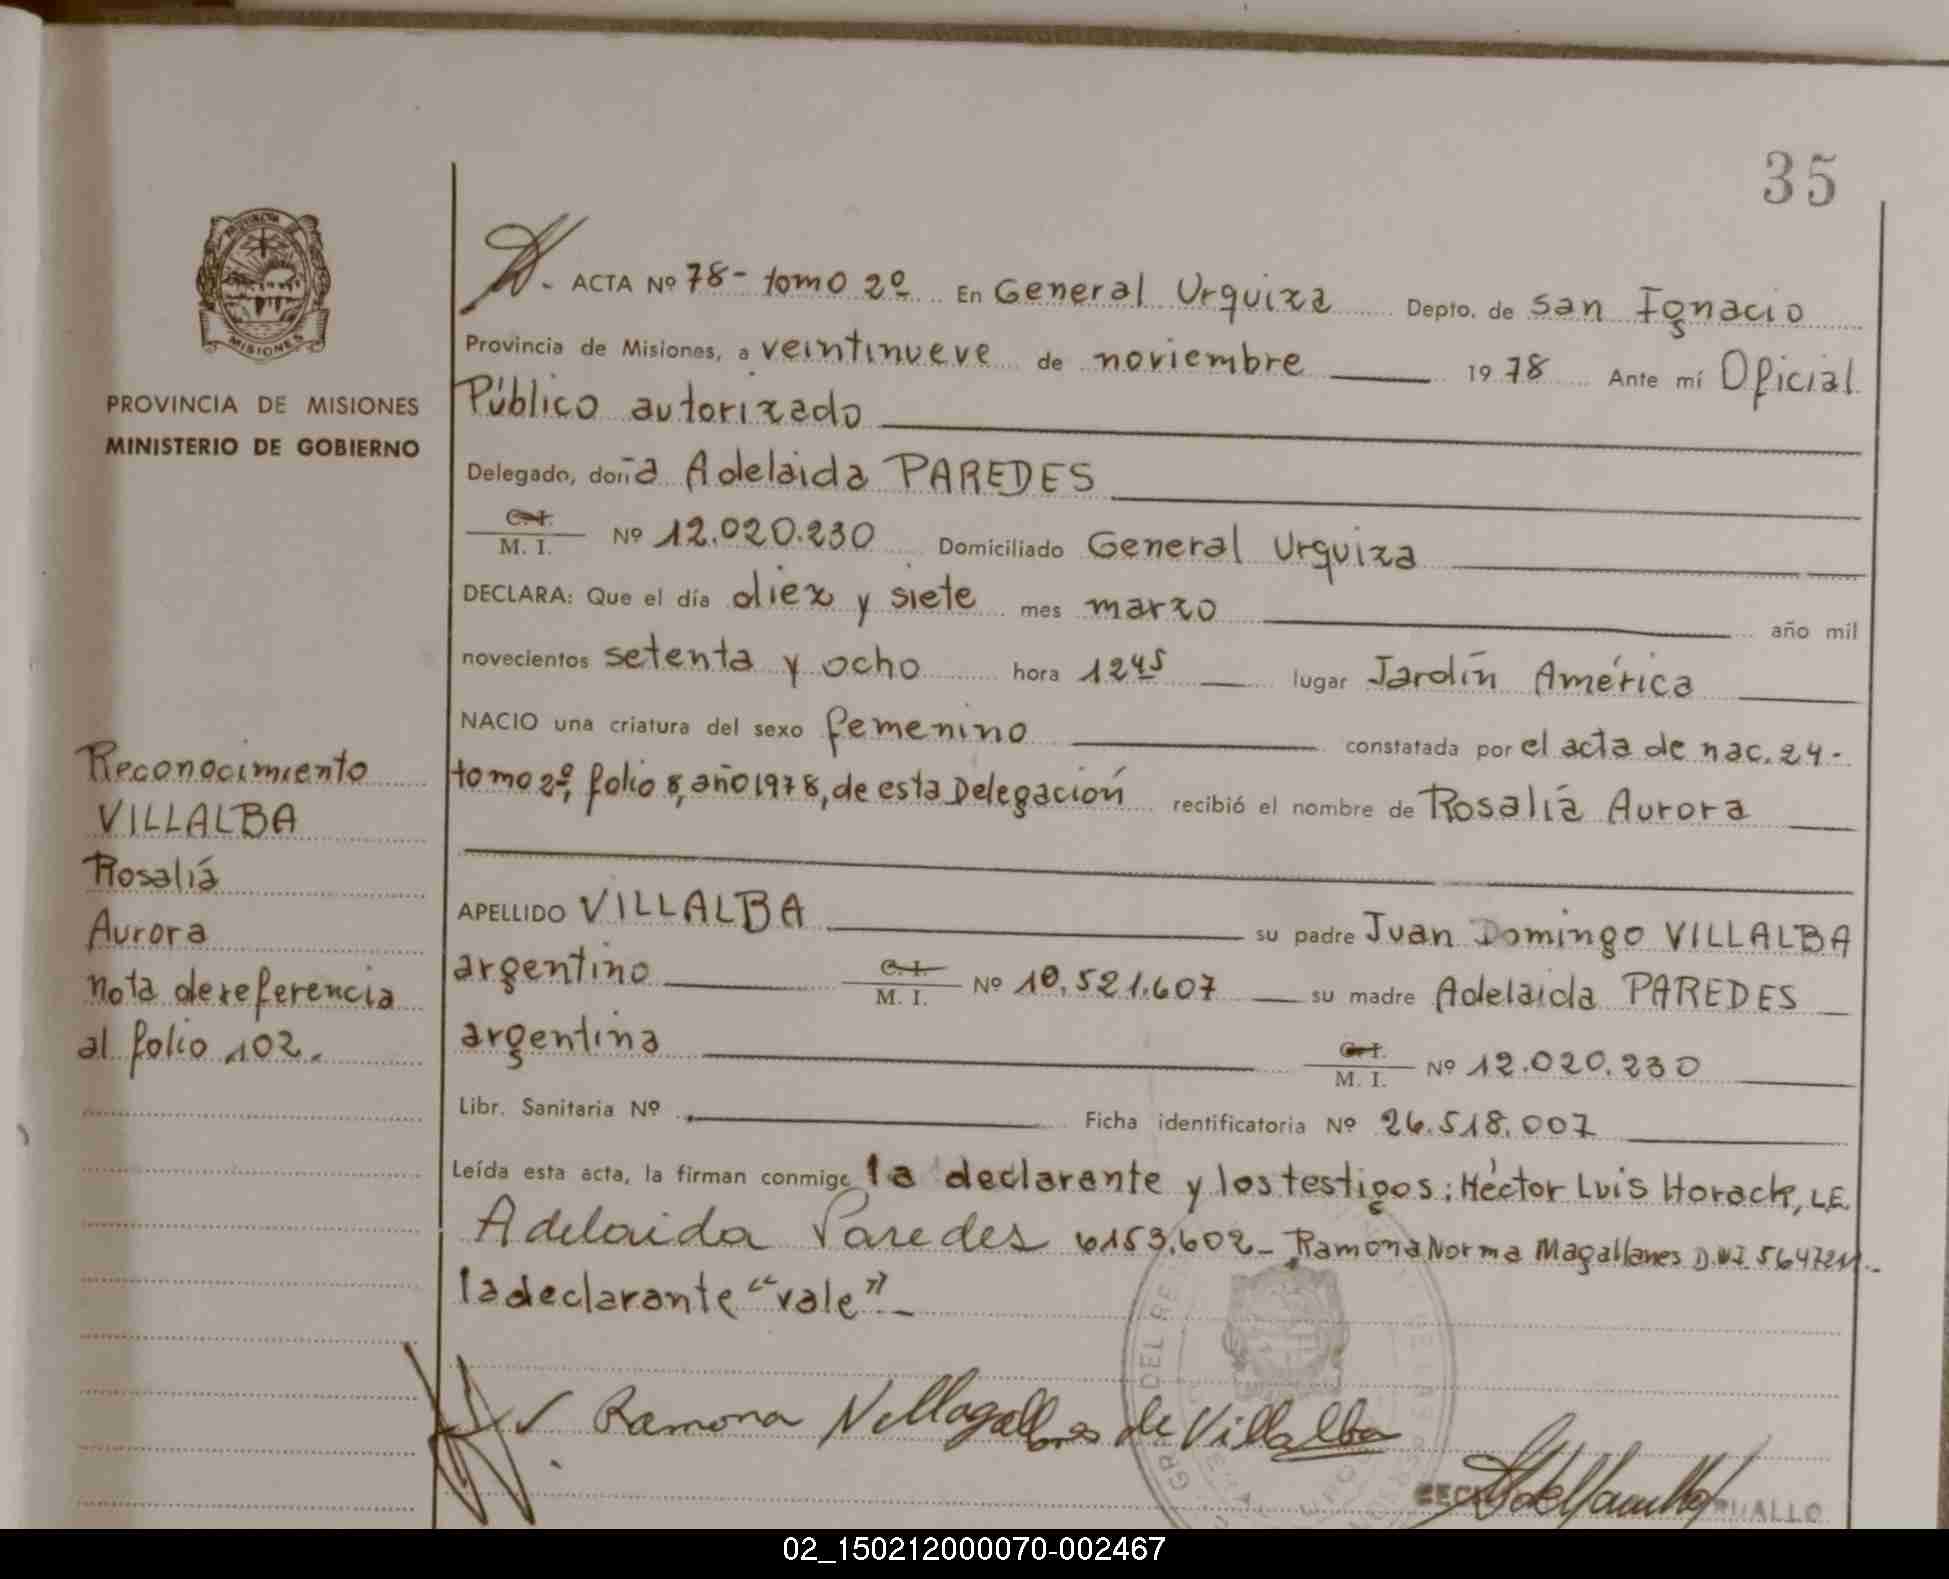 35
ACTA Nº 78- tomo 2º En General Urquiza Depto. de San Ignacio
Provincia de Misiones, a veintinueve de noviembre 1978 Ante mí Oficial
Público autorizado
Delegado, doña Adelaida PAREDES
C.I.
M. I. Nº 12.020.230 Domiciliado General Urquiza
DECLARA: Que el día diez y siete mes marzo año mil
novecientos setenta y ocho hora 1245 lugar Jardín América
NACIO una criatura del sexo femenino constatada por el acta de nac. 24-
tomo 2º, folio 8, año 1978, de esta Delegación recibió el nombre de Rosalía Aurora
APELLIDO VILLALBA su padre Juan Domingo VILLALBA
argentino C.I. M. I. Nº 10.521.607 su madre Adelaida PAREDES
argentina C.I. M. I. Nº 12.020.230
Libr. Sanitaria Nº Ficha identificatoria Nº 26.518.007
Leída esta acta, la firman conmigo la declarante y los testigos: Héctor Luis Horack, L.E.
Adelaida Paredes 6153.602- Ramona Norma Magallanes D.N.I.
la declarante "vale"-
Ramona N Magallanes de Villalba
PROVINCIA DE MISIONES
MINISTERIO DE GOBIERNO
MISIONES
Reconocimiento
VILLALBA
Rosaliá
Aurora
nota de referencia
al folio 102.
02_150212000070-002467